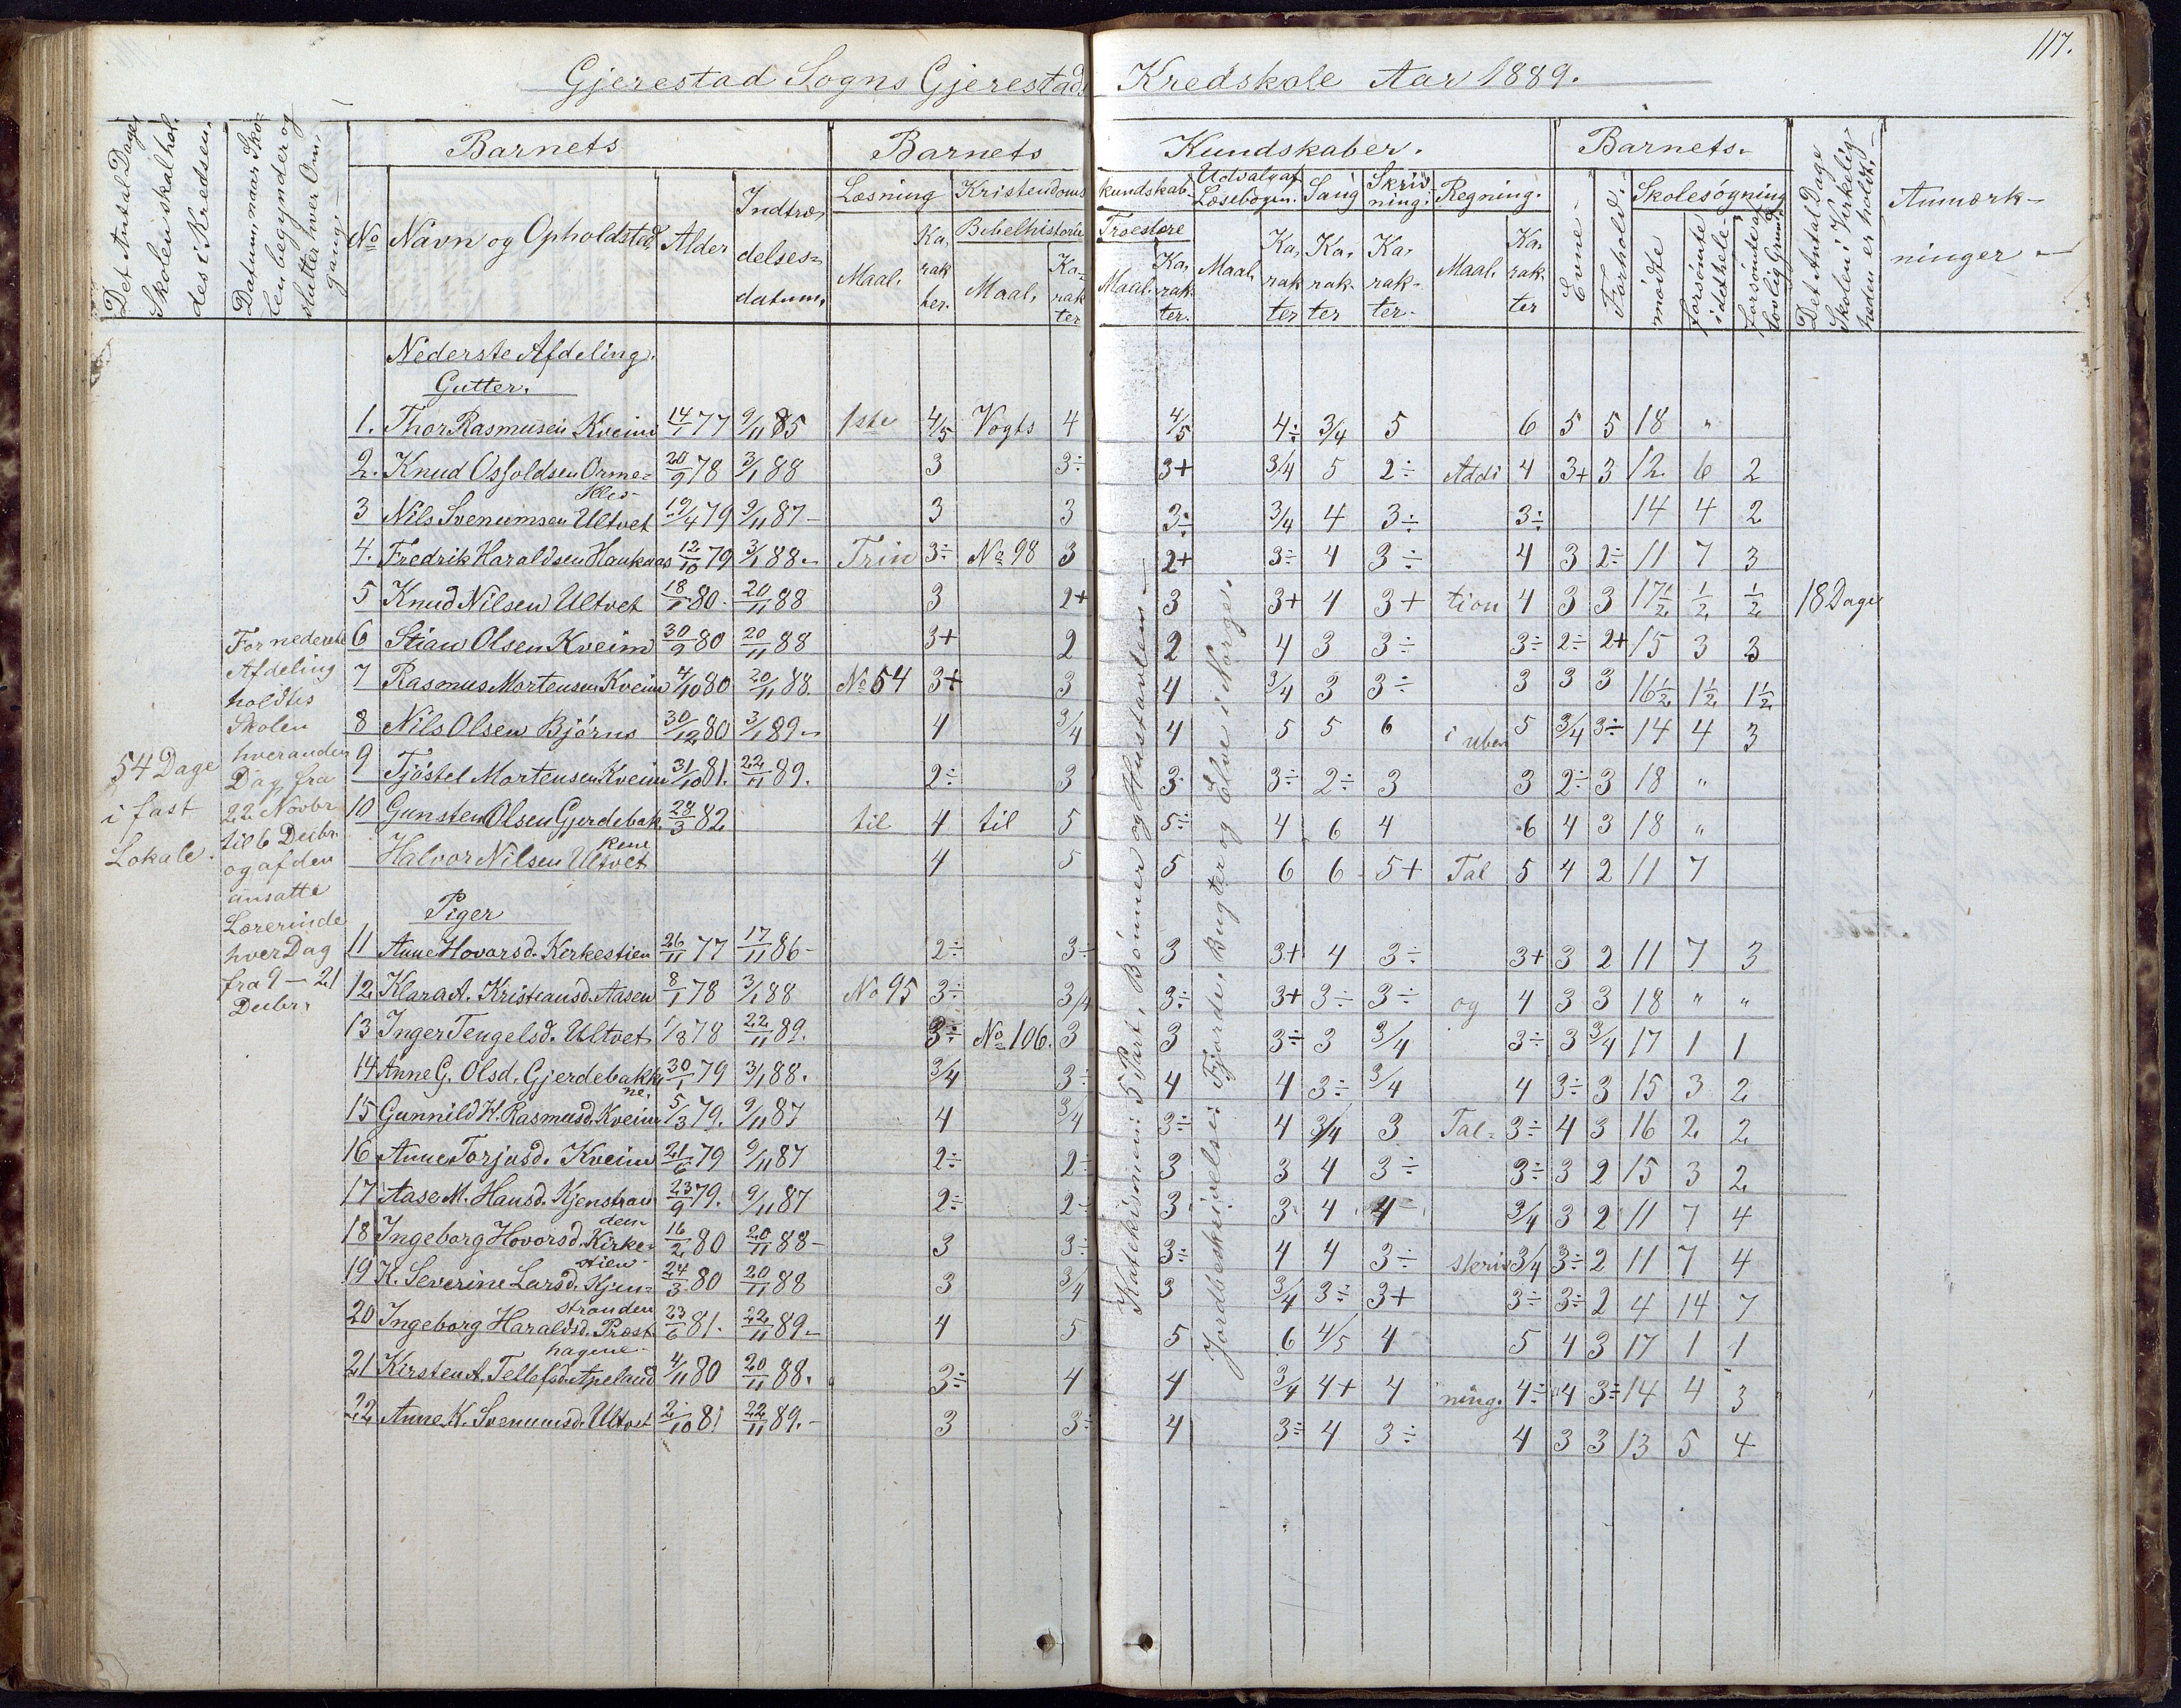 117.
Gjerestad Sogns Gjerestads Kredskole Aar 1889.
Det Antal Dage, Skolen skal holdes i Kredsen.
Datum, naar Skolen begynder og slutter hver Omgang
Barnets
Barnets Kundskaber.
Barnets.
Det Antal Dage Skolen i Virkeligheden er holdt.
Anmærkninger
No
Navn og Opholdsted
Alder
Indtrædelsesdatum,
Læsning
Kristendomskundskab.
Udvalg af Læsebogen.
Sang
Skrivning.
Regning.
Evne
Forhold.
Skolesøgning
Maal.
Karakter.
Bibelhistorie
Maal,
Karakter
Troeslære
Maal.
Karakter.
Maal.
Karakter
Karakter
Karakter.
Maal.
Karakter
mødte
forsømte i det hele
forsømte af lovlig Grund
Nederste Afdeling.
Gutter.
1. Thor Rasmusen Kveim 14/1 77 9/11 85 1ste 4/5 Vogts 4 4/5 4÷ 3/4 5 6 5 5 18 "
2. Knud Osfoldsen Ormekles 20/9 78 3/1 88 3 3÷ 3+ 3/4 5 2÷ Addi 4 3+ 3 12 6 2
3 Nils Svenumsen Ultvet 19/4 79 9/11 87 3 3 3÷ 3/4 4 3÷ 3÷ 14 4 2
4. Fredrik Haraldsen Hauknæs 12/10 79 3/1 88 Trin 3÷ No 98 3 2+ 3÷ 4 3÷ 4 3 2÷ 11 7 3
5 Knud Nilsen Ultvet 18/1 80. 20/11 88 3 2+ 3 3+ 4 3+ tion 4 3 3 17½ ½ ½ 18 Dage
6 Stian Olsen Kveim 30/9 80 20/11 88 3+ 2 2 4 3 3÷ 3÷ 2÷ 2+ 15 3 3
7 Rasmus Mortensen Kveim 4/10 80 20/11 88 No 54 3+ 3 4 3/4 3 3÷ 3 3 3 16½ 1½ 1½
8 Nils Olsen Bjørns 30/12 80 3/1 89 4 3/4 4 5 5 6 i uben 5 3/4 3÷ 14 4 3
9 Tjøstel Mortensen Kveim 31/10 81. 22/11 89. 2÷ 3 3 3÷ 2÷ 3 3 2÷ 3 18 "
10 Gunsten Olsen Gjerdebakkene 28/3 82 til 4 til 5 5÷ 4 6 4 6 4 3 18 "
Halvor Nilsen Ultvet 4 5 5 6 6 5+ Tal 5 4 2 11 7
Piger
11 Anne Hovarsd. Kirkestien 26/11 77 17/11 86 2÷ 3÷ 3 3+ 4 3÷ 3+ 3 2 11 7 3
12 Klara A. Kristiansd. Aasen 8/1 78 3/1 88 No 95 3÷ 3/4 3÷ 3+ 3÷ 3÷ og 4 3 3 18 " "
13 Inger Tengelsd. Ultvet 1/8 78 22/11 89. 3÷ No 106. 3 3 3÷ 3 3/4 3÷ 3 3/4 17 1 1
14 Anne G. Olsd. Gjerdebakkene. 30/1 79 3/1 88. 3/4 3÷ 4 4 3÷ 3/4 4 3÷ 3 15 3 2
15 Gunnild H. Rasmusd. Kveim 5/3 79. 9/11 87 4 3/4 3÷ 4 3/4 3 Tal- 3÷ 4 3 16 2 2
16 Anne Torjusd. Kveim 21/6 79 9/11 87 2÷ 2÷ 3 3 4 3÷ 3÷ 3 2 15 3 2
17 Aase M. Hansd. Kjenstranden 23/9 79. 9/11 87 2÷ 2÷ 3 3 4 4 3/4 3 2 11 7 4
18 Ingeborg Hovorsd. Kirkestien 16/2 80 20/11 88 3 3÷ 3÷ 4 4 3÷ skriv 3/4 3÷ 2 11 7 4
19 K. Severine Larsd. Kjenstranden 24/3 80 20/11 88 3 3/4 3 3/4 3÷ 3+ 3÷ 3÷ 2 4 14 7
20 Ingeborg Haraldsd. Præsthagene 23/6 81. 22/11 89. 4 5 5 6 4/5 4 5 4 3 17 1 1
21 Kirsten A. Tellefsd. Apeland 4/11 80 20/11 88. 3÷ 4 4 3/4 4+ 4 ning. 4÷ 4 3÷ 14 4 3
22 Anne K. Svenumsd. Ultvet 2/10 81 22/11 89. 3 3÷ 4 3÷ 4 3÷ 4 3 3 13 5 4
54 Dage
i fast
Lokale.
For nederste
Afdeling
holdtes
Skolen
hveranden
Dag fra
22 Novbr
til 6 Decbr.
og af den
ansatte
Lærerinde
hver Dag
fra 9 — 21
Decbr.
Katekismen: 5 Part, Bønner og Hustavlen
Jordbeskrivelse: Fjorde, Bugter og Elve i Norge.